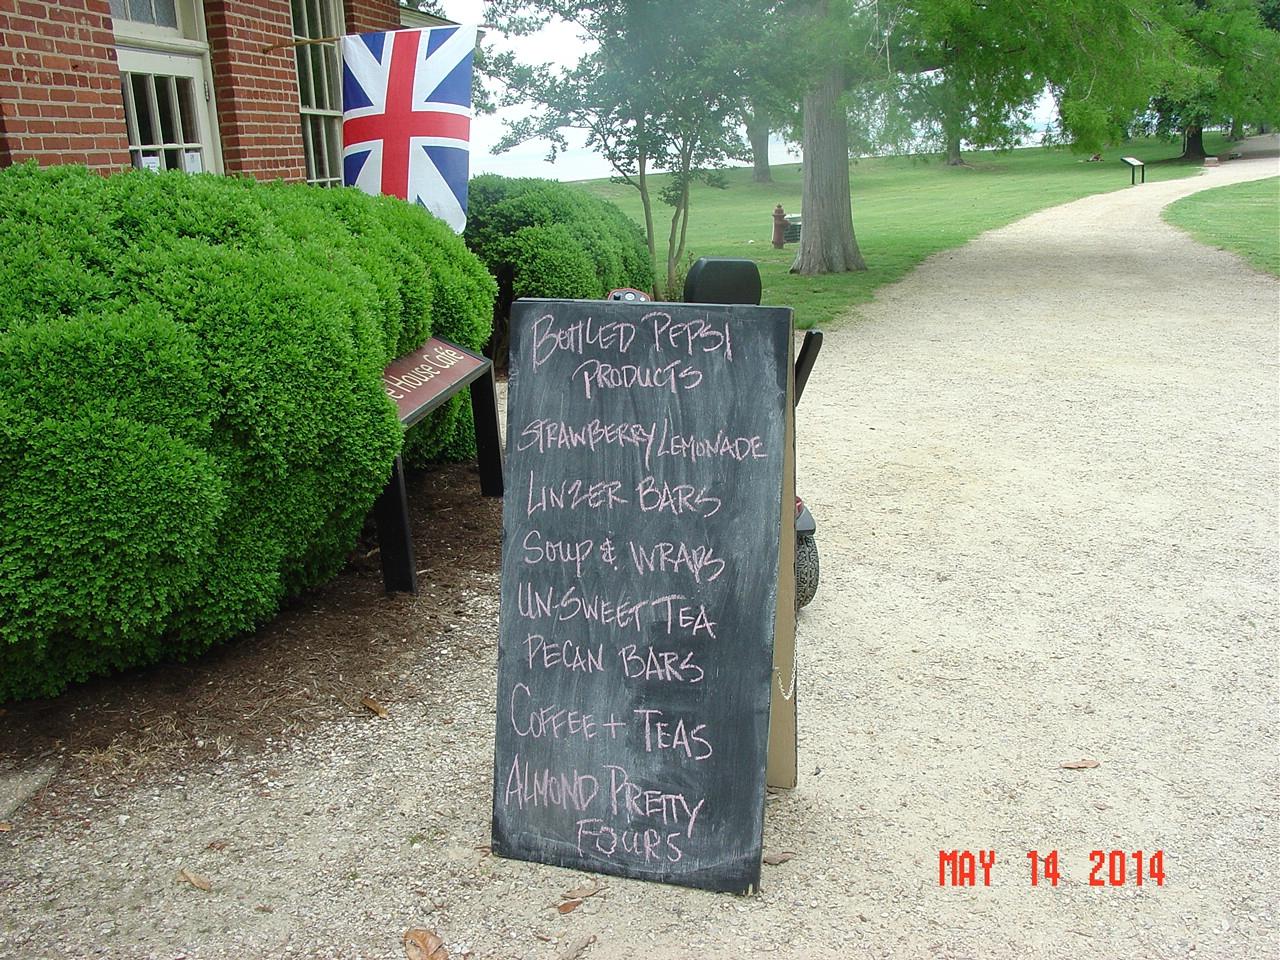 e House Café
BOTTLED PEPSI
PRODUCTS
STRAWBERRY LEMONADE
LINZER BARS
SOUP & WRAPS
UN-SWEET TEA
PECAN BARS
COFFEE + TEAS
ALMOND PRETTY
FOURS
MAY 14 2014